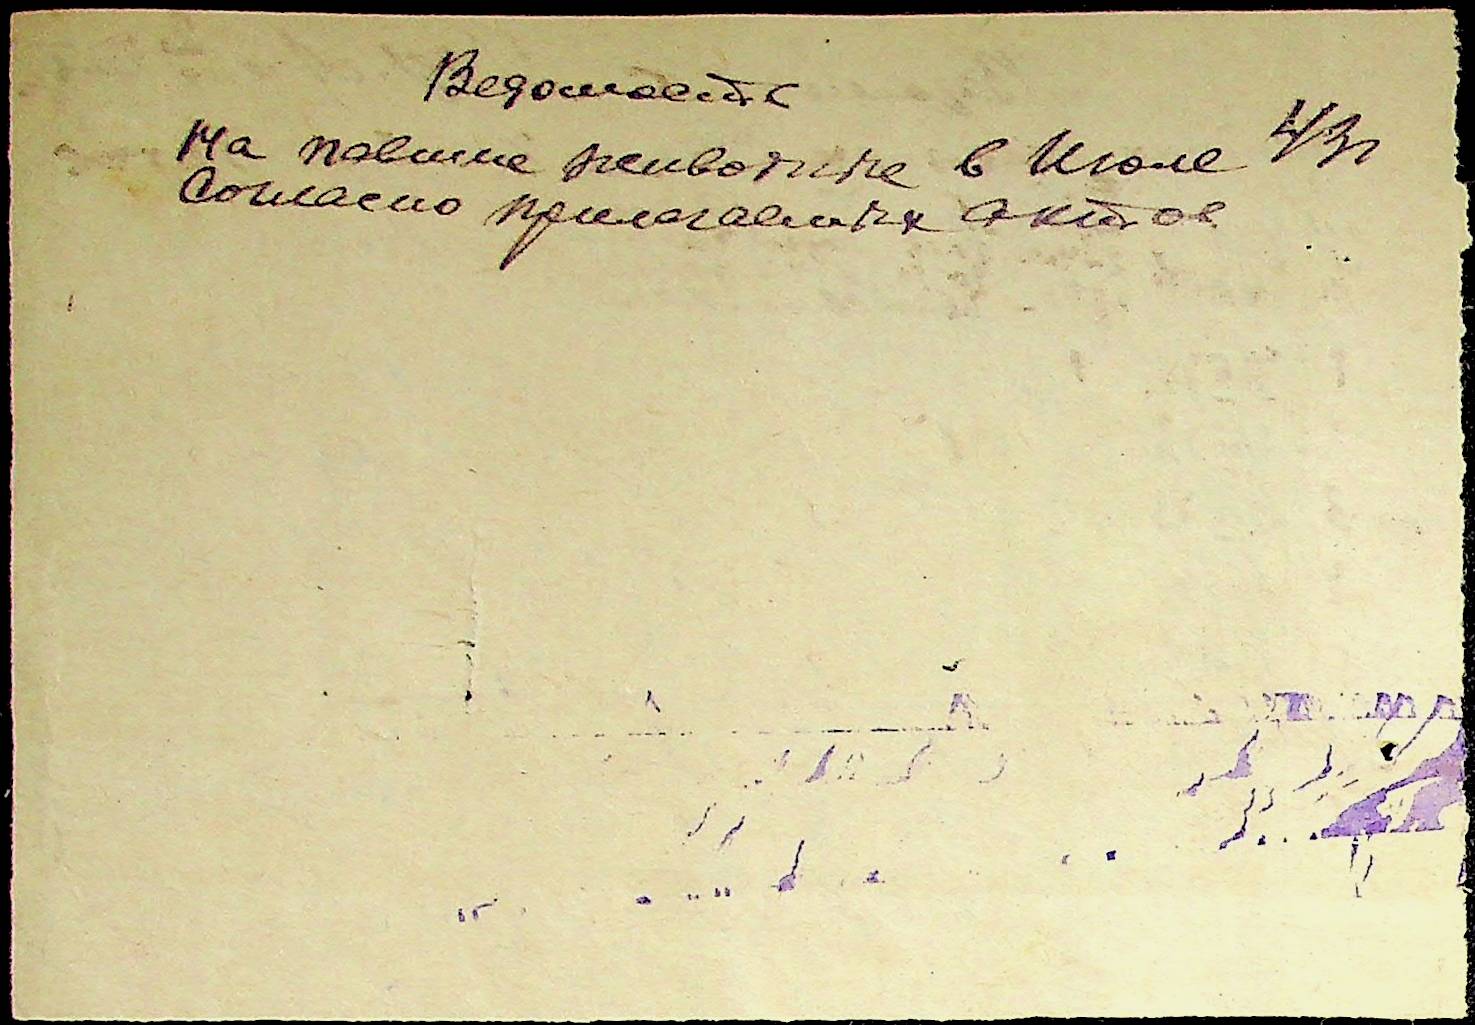 Ведомость
На павшие животные в Июле 43г
Согласно прилагаемых актов